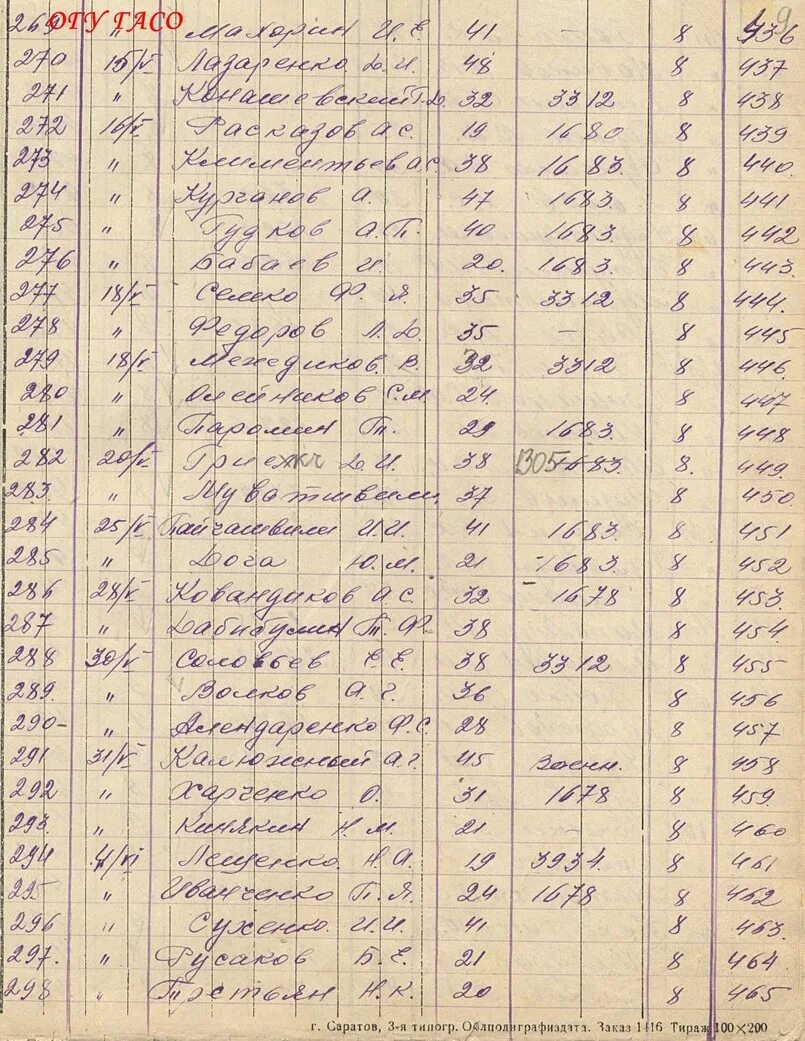 ОГУ ГАСО
9
269 " Махорин И. Е. 41 8 436
270 15/V Лазаренко Д. И. 48 8 437
271 " Конашевский Г. Д. 32 3312 8 438
272 16/V Расказов А С. 19 1680 8 439
273 " Климентьев А С. 38 1683. 8 440.
274 " Курганов А. 47 1683. 8 441
275 " Гудков А. П. 40 1683. 8 442
276 " Бабаев И 20. 1683. 8 443.
277 18/V Семко Ф. Я. 35 3312 8 444.
278 " Федоров Л. Д. 35 — 8 445
279 18/V Межедиков. В. 32 3312 8 446.
280 " Олейников С. М. 24 8 447
281 " Паромин Т. 29 1683. 8 448
282 20/V Д. И. 38 1305 1683. 8. 449.
283. " 37 8 450.
284 25/V Пайчашвили И. И. 41 1683. 8 451
285 " Дога Ю. М. 21 1683. 8 452
286 28/V Ковандиков А С. 32 1678 8 453.
287 " Дабибулин Т. Ф. 38 8 454.
288 30/V Соловьев Е. Е. 38 3312 8 455
289. " Волков А. Г. 36 8 456
290- " Алендаренко Ф. С. 28 8 457
291 31/V Калюжный А. Г. 45 Военн. 8 458
292 " Харченко О. 31 1678 8 459.
293. " Кинякин Н. М. 21 — 8 460
294 4/VI Лещенко. Н. А. 19 3934. 8 461
295 " Иванченко П. Я. 24 1678 8 462
296 " Сухенко. И. И. 41 8 463.
297. " Русаков Б. Е. 21 8 464
298 " Престьян Н. К. 20 8 465
г. Саратов, 3-я типогр. Облполиграфиздата. Заказ 1416 Тираж 100×200